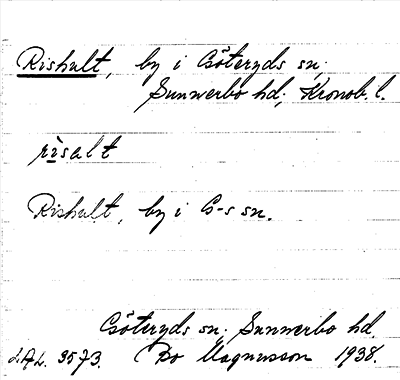 Rishult, by i Göteryds sn,
Sunnerbo hd, Kronob. l.
rìsalt
Rishult, by i G-s sn.
Göteryds sn. Sunnerbo hd.
LAL. 3573. Bo Magnusson 1938.